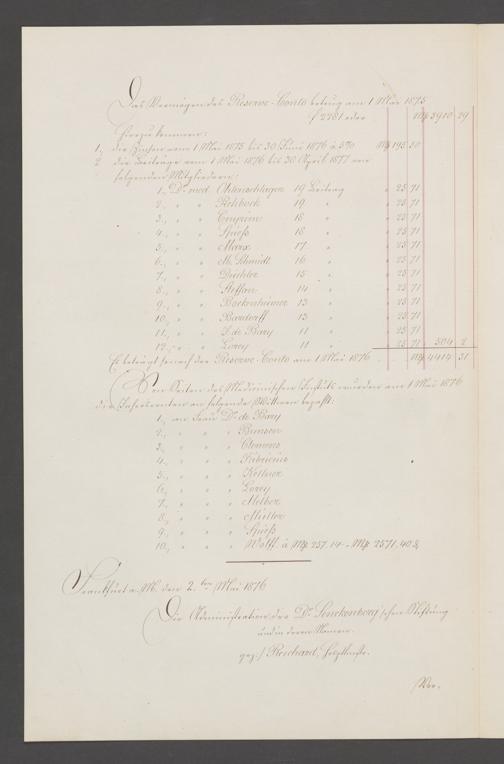 Das Vermögen des Reserve-Conto betrug am 1 Mai 1875
f 2281 oder M 3910 29
Hierzu kommen:
1, die Zinsen vom 1 Mai 1875 bis 30 Juni 1876 à 5% M 195 50
2 die Beiträge vom 1 Mai 1876 bis 30 April 1877 von
folgenden Mitgliedern:
1, Dr med. 19 Beitrag " 25 71
2, " " Rehbock 19 " " 25 71
3, " " 18 " " 25 71
4, " " Spieß 18 " " 25 71
5, " " Marx 17 " " 25 71
6, " " M. Schmidt 16 " " 25 71
7, " " 15 " " 25 71
8, " " Steffan 14 " " 25 71
9, " " Bockenheimer 13 " " 25 71
10, " " Bardorff 13 " " 25 71
11, " " J. de Bary 11 " " 25 71
12, " " Lorey 11 " " 25 71 504 2
Es beträgt sonach der Reserve-Conto am 1 Mai 1876 M 4414 31
Von Seiten des Medicinischen Instituts wurden am 1 Mai 1876
die Jahresrenten an folgende Wittwen bezahlt:
1, an Frau Dr. de Bary
2, " " " Bunsen
3, " " " Clemens
4, " " " Fabricius
5, " " " Kellner
6, " " " Lorey
7, " " " Melber
8, " " " Müller
9, " " " Spieß
10, " " " Wolff. à M 257.14 = M 2571,40 ₰
Frankfurt a. M. den 2. ten Mai 1876
Die Administration der Dr Senckenberg'schen Stiftung
und in deren Namen
gez. / Reichard,
Vor.